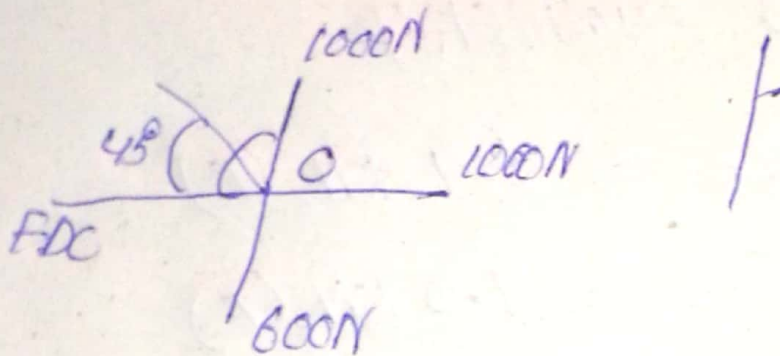 1000N
45° O 1000N
FDC
600N